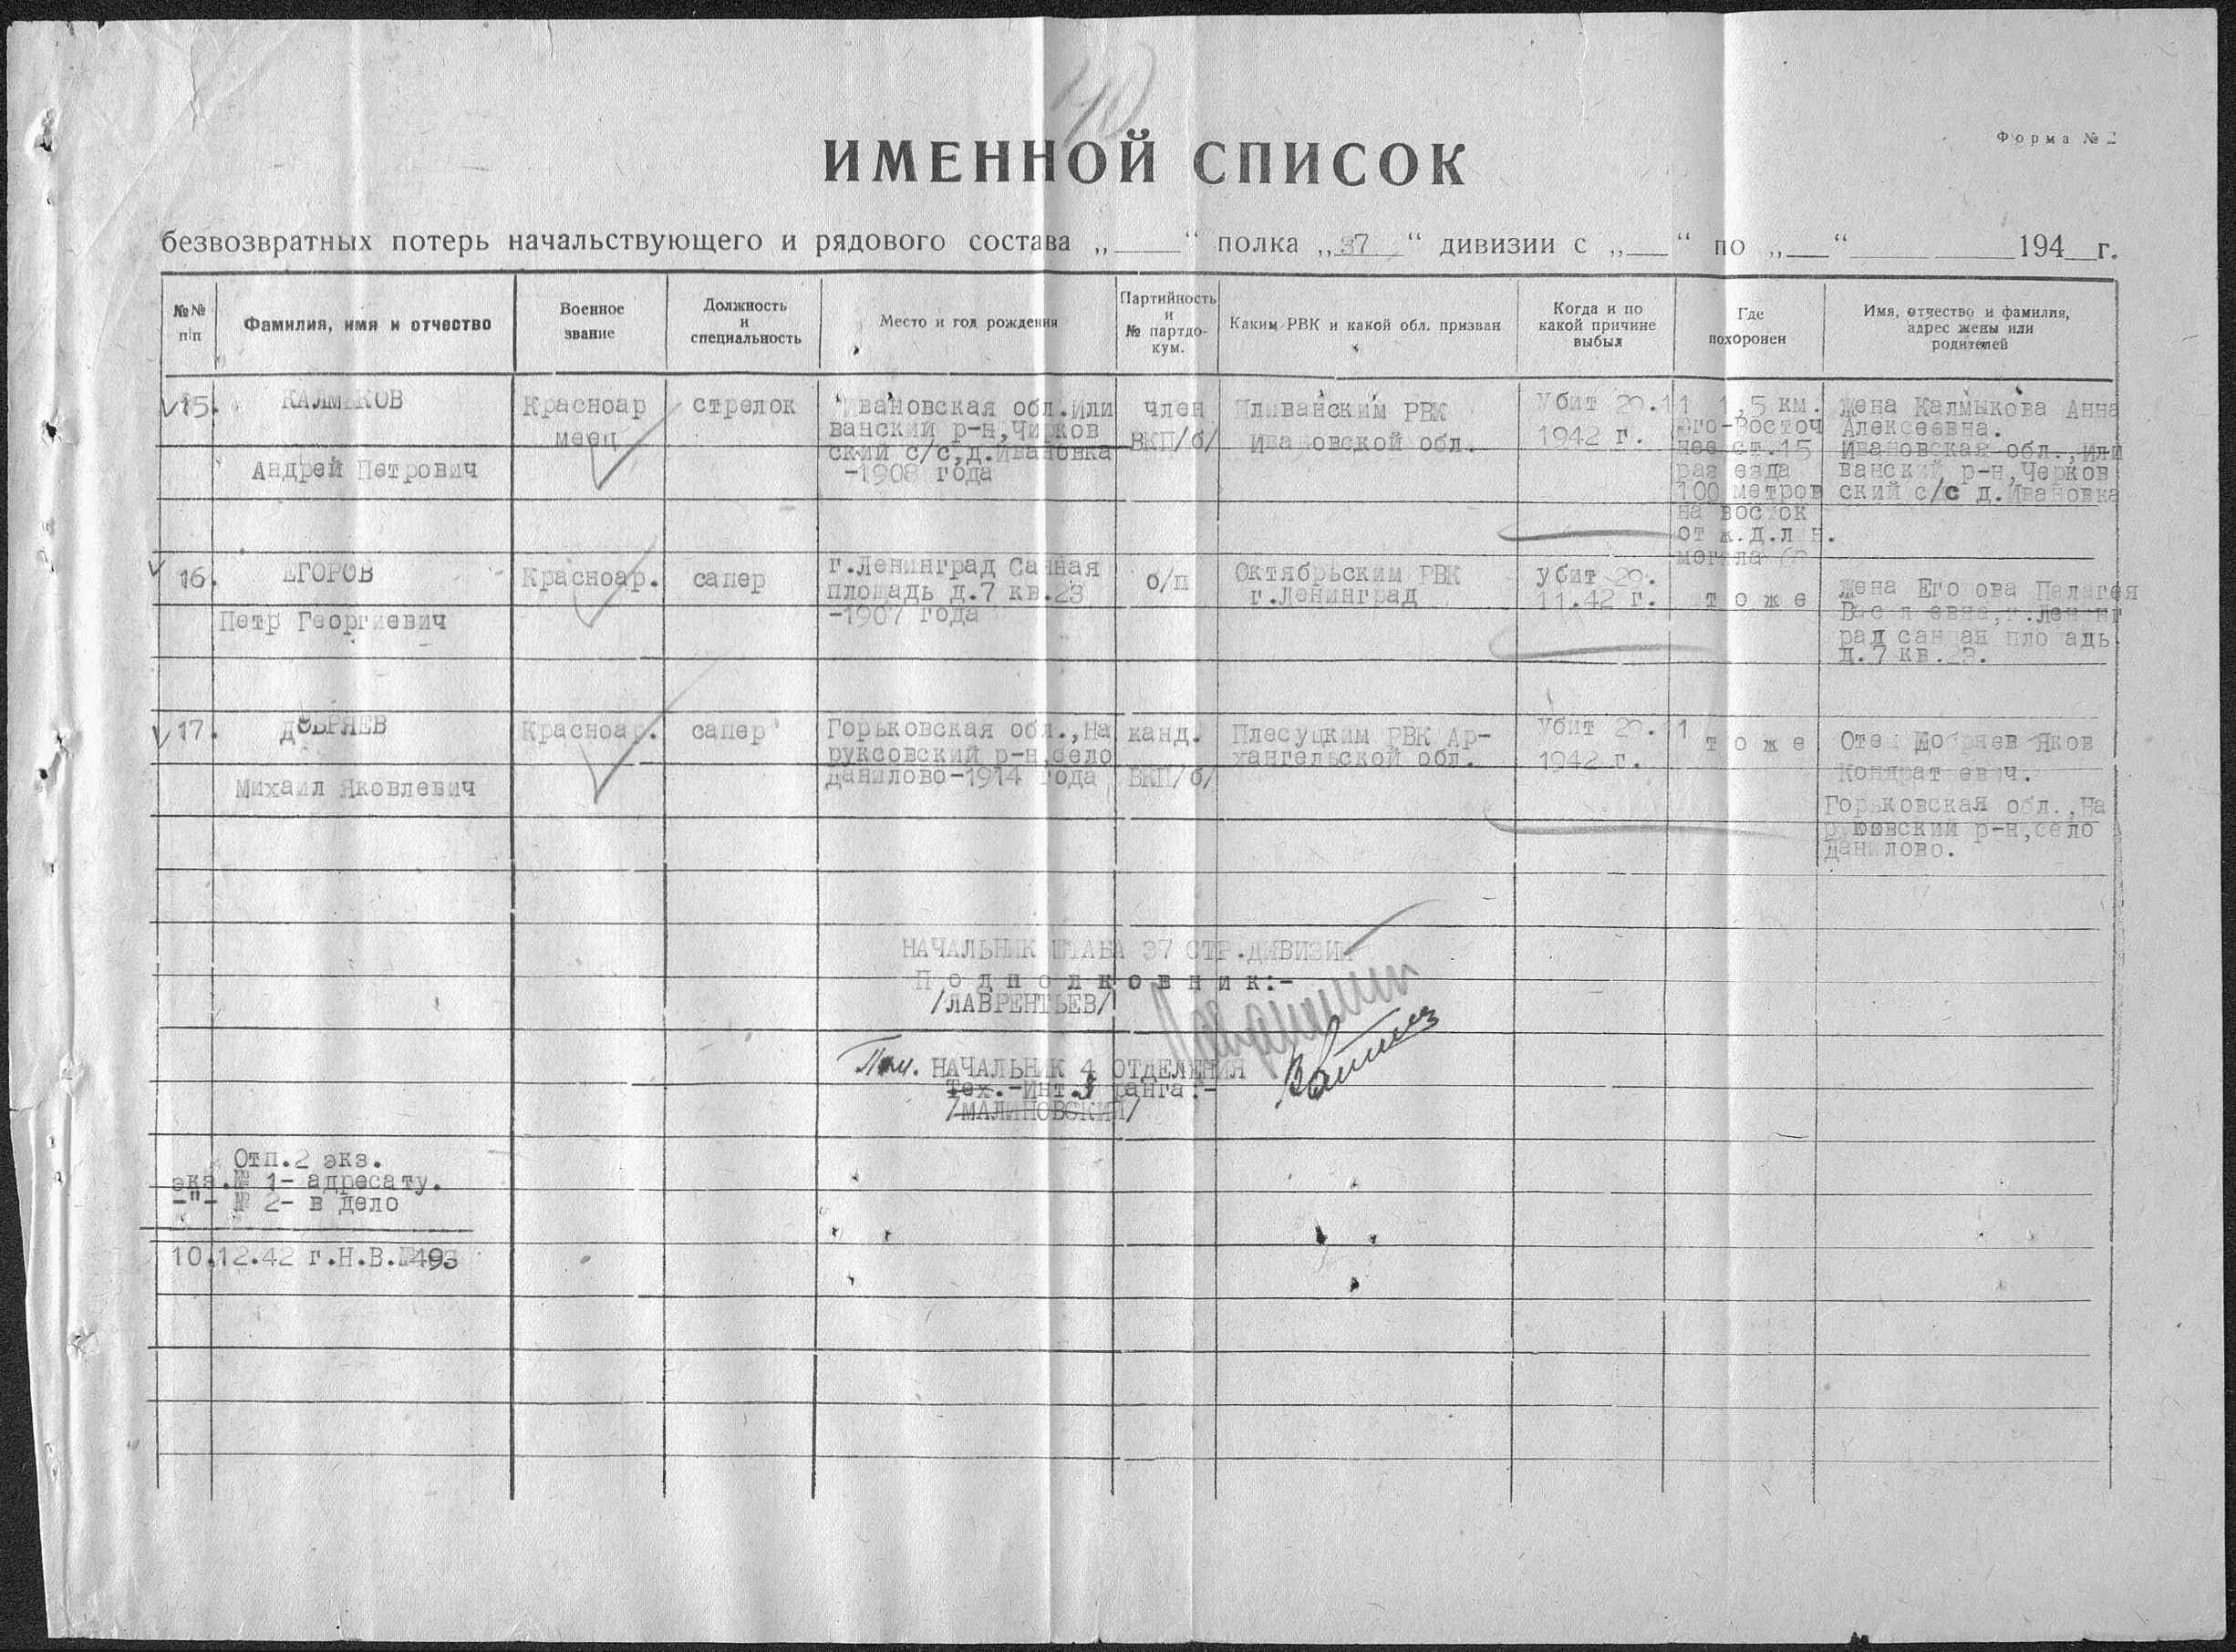 Форма № 2
ИМЕННОЙ СПИСОК
безвозвратных потерь начальствующего и рядового состава „____“ полка „37“ дивизии с „__“ по „__“ ________ 194__г.
№№ п/п
Фамилия, имя и отчество
Военное
звание
Должность
и
специальность
Место и год рождения
Партийность
и
№ партдо-
кум.
Каким РВК и какой обл. призван
Когда и по
какой причине
выбыл
Где
похоронен
Имя, отчество и фамилия,
адрес жены или
родителей
15.
КАЛМЫКОВ
Андрей Петрович
Красноар
меец
стрелок
Ивановская обл.Или
ванский р-н,Чирков
ский с/с,д.Ивановка
-1908 года
член
ВКП/б/
Иливанским РВК
Ивановской обл.
Убит 20.11
1942 г.
1,5 км.
юго-восточ
нее ст.15
раз езда
100 метров
на восток
от ж.д.лин.
могила
Жена Калмыкова Анна
Алексеевна.
Ивановская обл.,Или
ванский р-н,Черков
ский с/с д.Ивановка
16.
ЕГОРОВ
Петр Георгиевич
Красноар.
сапер
г.Ленинград Санная
площадь д.7 кв.23
-1907 года
б/п
Октябрьским РВК
г.Ленинград
убит 20.
11.42 г.
т о ж е
Жена Егорова Палагея
Васильевна,г.Ленинг
рад санная площадь
д.7 кв.23.
17.
ДОБРЯЕВ
Михаил Яковлевич
Красноар.
сапер
Горьковская обл.,На
руксовский р-н,село
данилово-1914 года
канд.
ВКП/б/
Плесуцким РВК Ар-
хангельской обл.
Убит 20.11
1942 г.
т о ж е
Отец Добряев Яков
Кондратьевич.
Горьковская обл.,На
руковский р-н,село
данилово.
НАЧАЛЬНИК ШТАБА 37 СТР.ДИВИЗИИ
П о д п о л к о в н и к:-
/ЛАВРЕНТЬЕВ/
Пом. НАЧАЛЬНИК 4 ОТДЕЛЕНИЯ
Тех.-Инт.3 ранга:-
/МАЛИНОВСКИЙ/
Отп.2 экз.
экз.№ 1- адресату.
-"- № 2- в дело
10.12.42 г.Н.В.№493